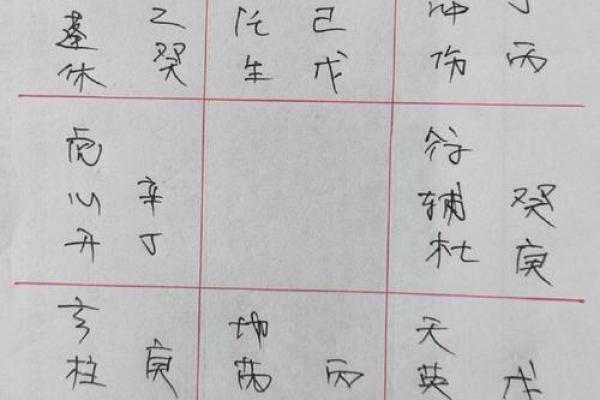 蓬 乙 任 己 冲
休 癸 生 戊 伤 丙
虎 符
心 辛 辅 癸
开 丁 杜 庚
玄 地 天
柱 庚 芮 丙 英 戊